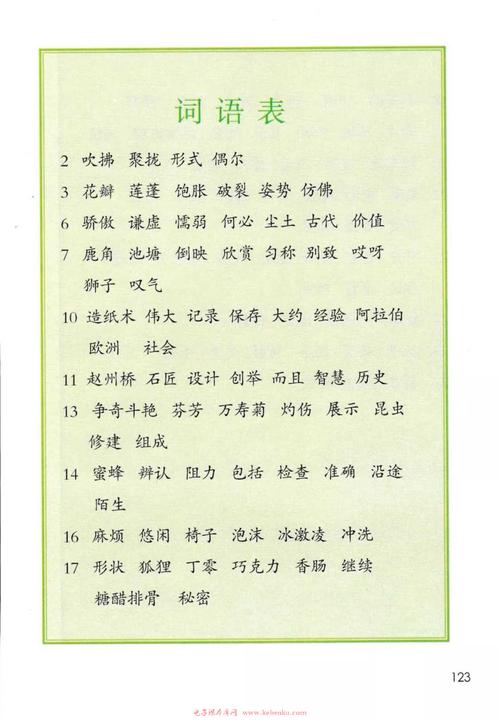 词语表
2 吹拂 聚拢 形式 偶尔
3 花瓣 莲蓬 饱胀 破裂 姿势 仿佛
6 骄傲 谦虚 懦弱 何必 尘土 古代 价值
7 鹿角 池塘 倒映 欣赏 匀称 别致 哎呀
狮子 叹气
10 造纸术 伟大 记录 保存 大约 经验 阿拉伯
欧洲 社会
11 赵州桥 石匠 设计 创举 而且 智慧 历史
13 争奇斗艳 芬芳 万寿菊 灼伤 展示 昆虫
修建 组成
14 蜜蜂 辨认 阻力 包括 检查 准确 沿途
陌生
16 麻烦 悠闲 椅子 泡沫 冰激凌 冲洗
17 形状 狐狸 丁零 巧克力 香肠 继续
糖醋排骨 秘密
123
电子课本库网 www.kebenku.com